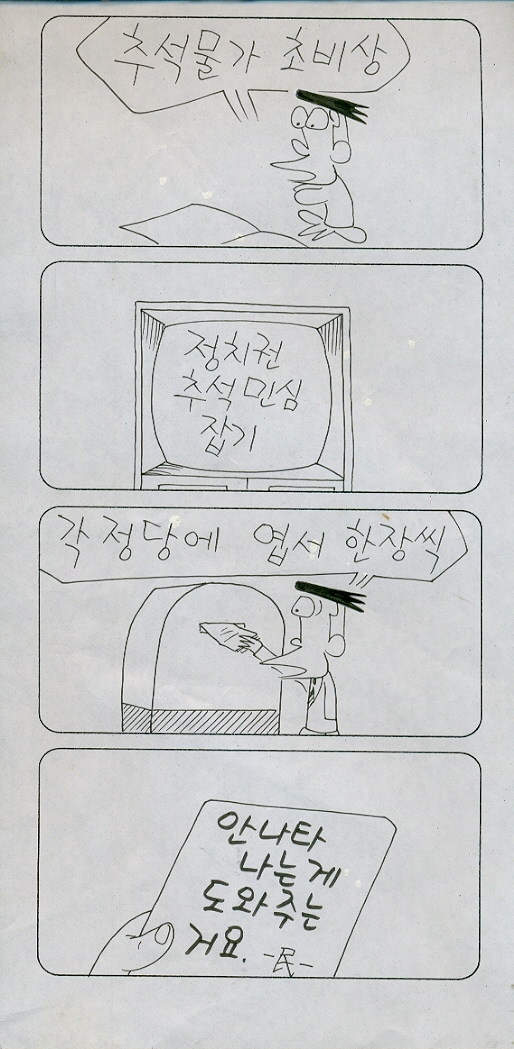 추석물가 초비상
정치권
추석 민심
잡기
각 정당에 엽서 한장씩
안나타
나는게
도와주는
거요.
-民-